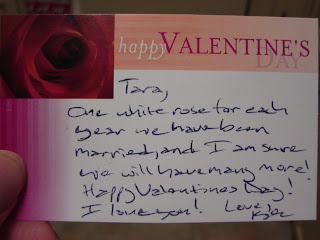 happy VALENTINE'S
DAY
Tara,
One white rose for each
year we have been
married, and I am sure
we will have many more!
Happy Valentines Day!
I love you! Love,